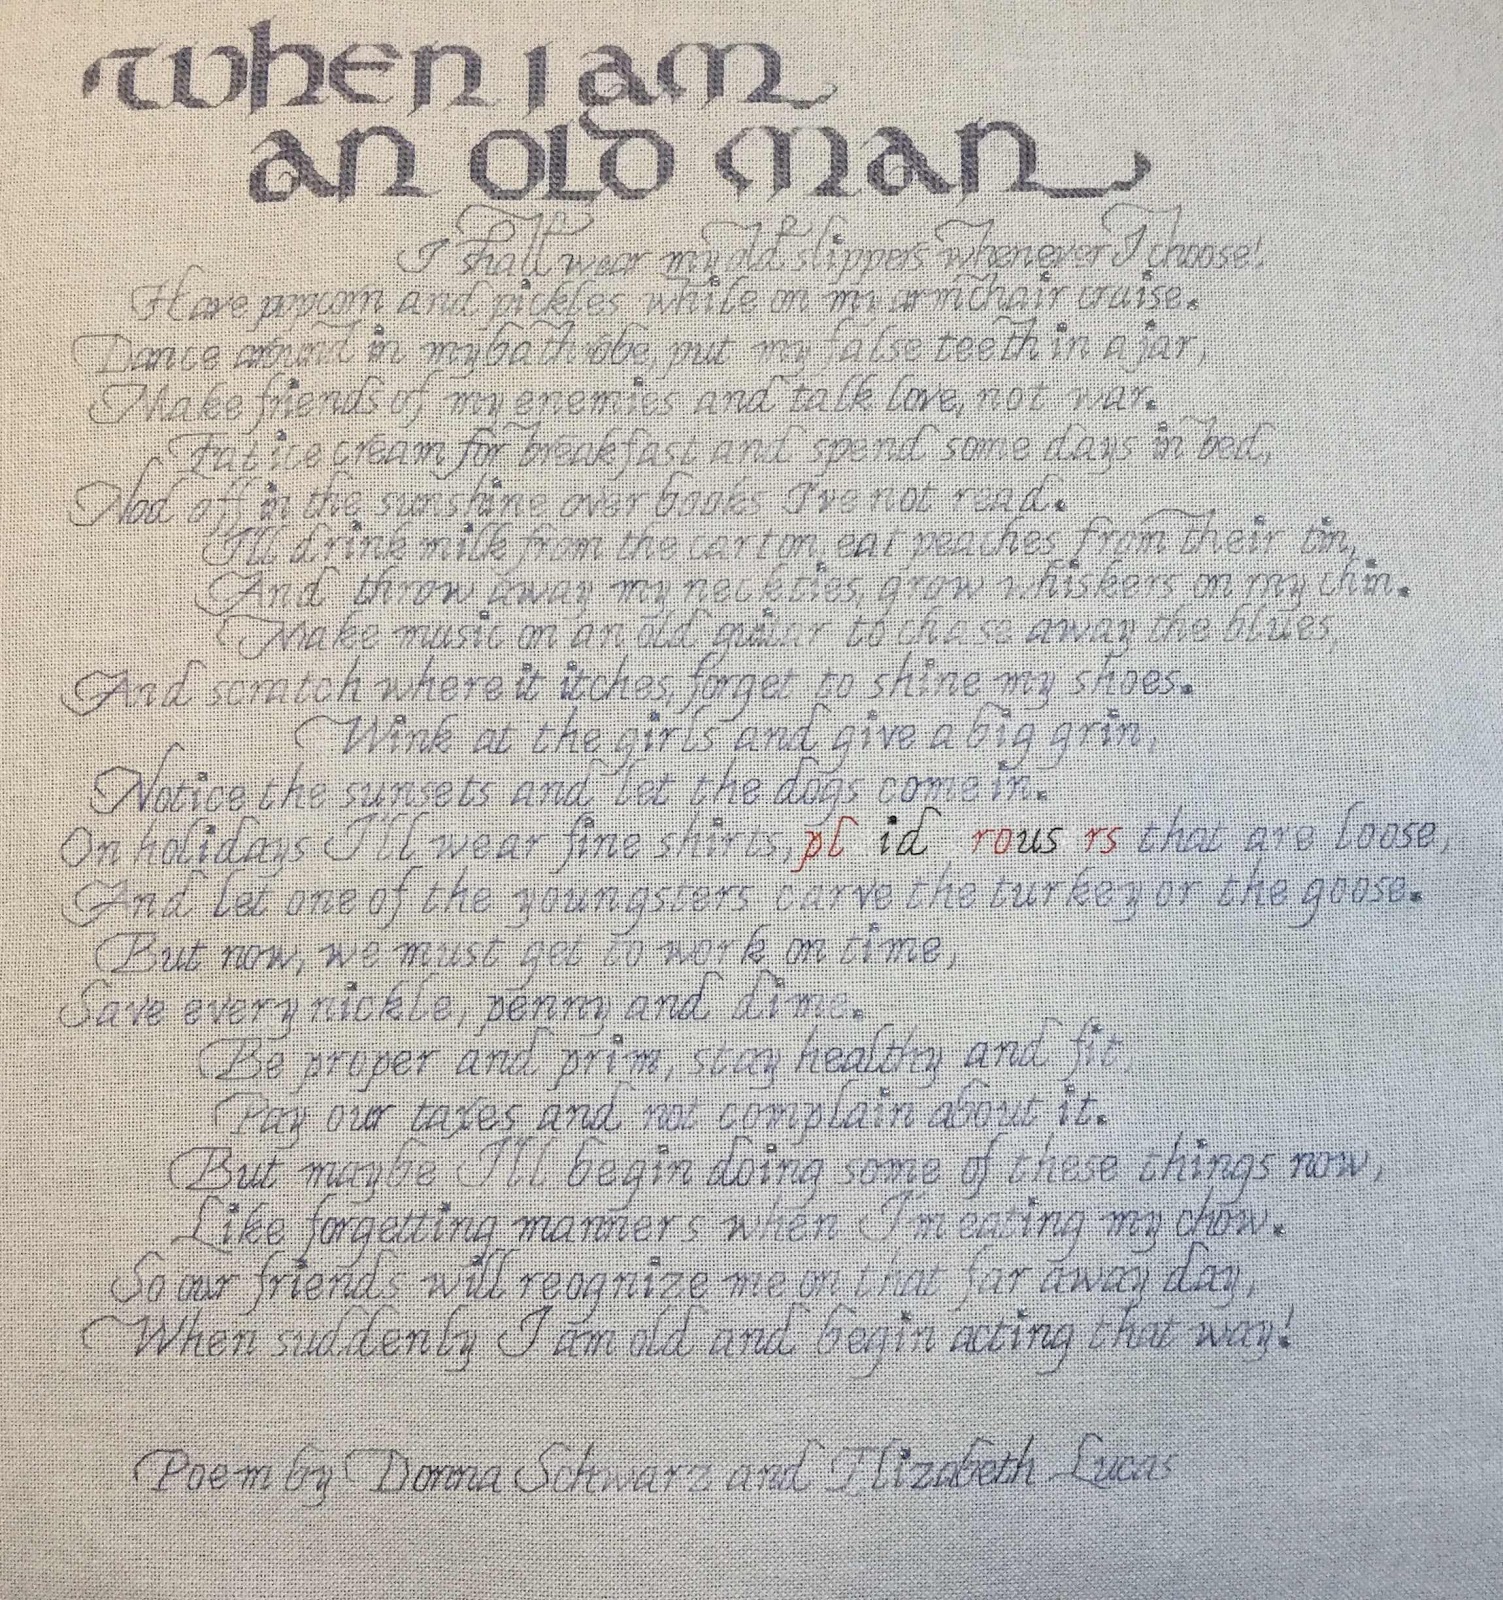 When I am
an old man
I shall wear my old slippers whenever I choose!
Have popcorn and pickles while on my armchair cruise.
Dance around in my bathrobe, put my false teeth in a jar,
Make friends of my enemies and talk love, not war.
Eat ice cream for breakfast and spend some days in bed,
Nod off in the sunshine over books I've not read.
I'll drink milk from the carton, eat peaches from their tin,
And throw away my neckties, grow whiskers on my chin.
Make music on an old guitar to chase away the blues,
And scratch where it itches, forget to shine my shoes.
Wink at the girls and give a big grin,
Notice the sunsets and let the dogs come in.
On holidays I'll wear fine shirts, pl id rous rs that are loose,
And let one of the youngsters carve the turkey or the goose.
But now, we must get to work on time,
Save every nickle, penny and dime.
Be proper and prim, stay healthy and fit,
Pay our taxes and not complain about it.
But maybe I'll begin doing some of these things now,
Like forgetting manners when I'm eating my chow.
So our friends will reognize me on that far away day,
When suddenly I am old and begin acting that way!
Poem by Donna Schwarz and Elizabeth Lucas